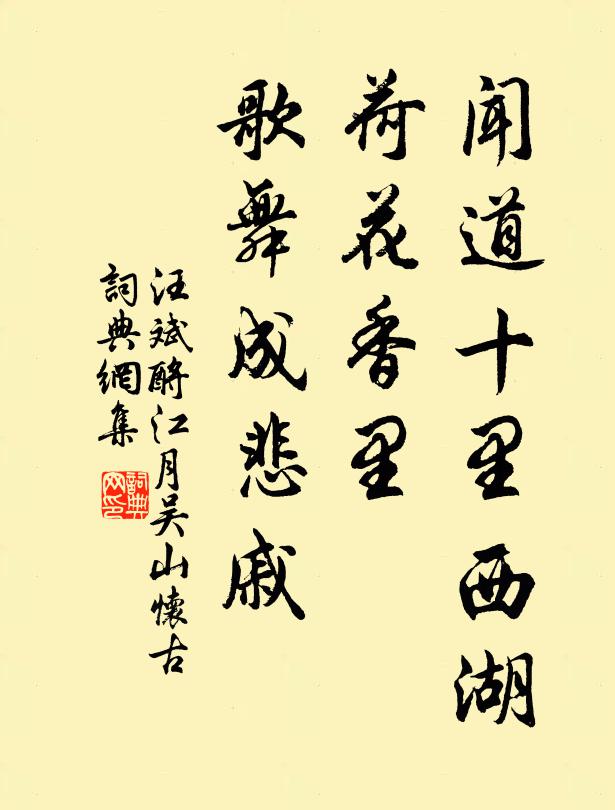 闻道十里西湖
荷花香里
歌舞成悲戚
汪斌酹江月吴山怀古
詞典網集
詞典网印